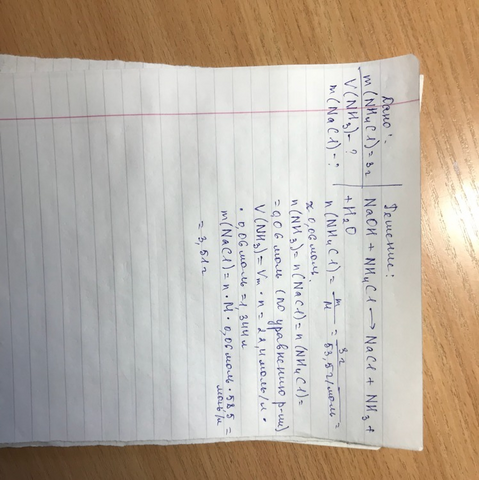 Дано:
m(NH4Cl)=3г
V(NH3)-?
m(NaCl)-?
Решение:
NaOH + NH4Cl → NaCl + NH3 +
+ H2O
n(NH4Cl) = m/M = 3г/53,5г/моль =
≈ 0,06 моль.
n(NH3) = n(NaCl) = n(NH4Cl) =
= 0,06 моль (по уравнению р-ии)
V(NH3) = Vm · n = 22,4 моль/л ·
· 0,06 моль = 1,344л
m(NaCl) = n · M · 0,06 моль · 58,5 моль/л =
= 3,51г